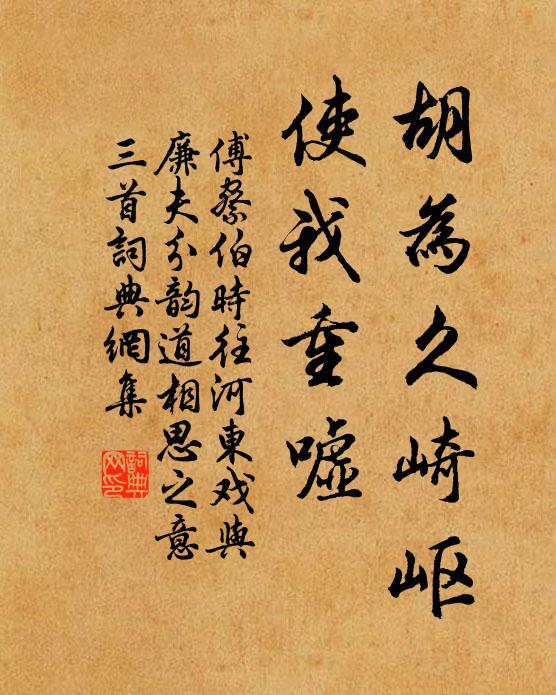 胡為久崎岖
使我重嘘
傅察伯時往河東戏與
廉夫分韵道相思之意
三首詞典網集
詞典网印